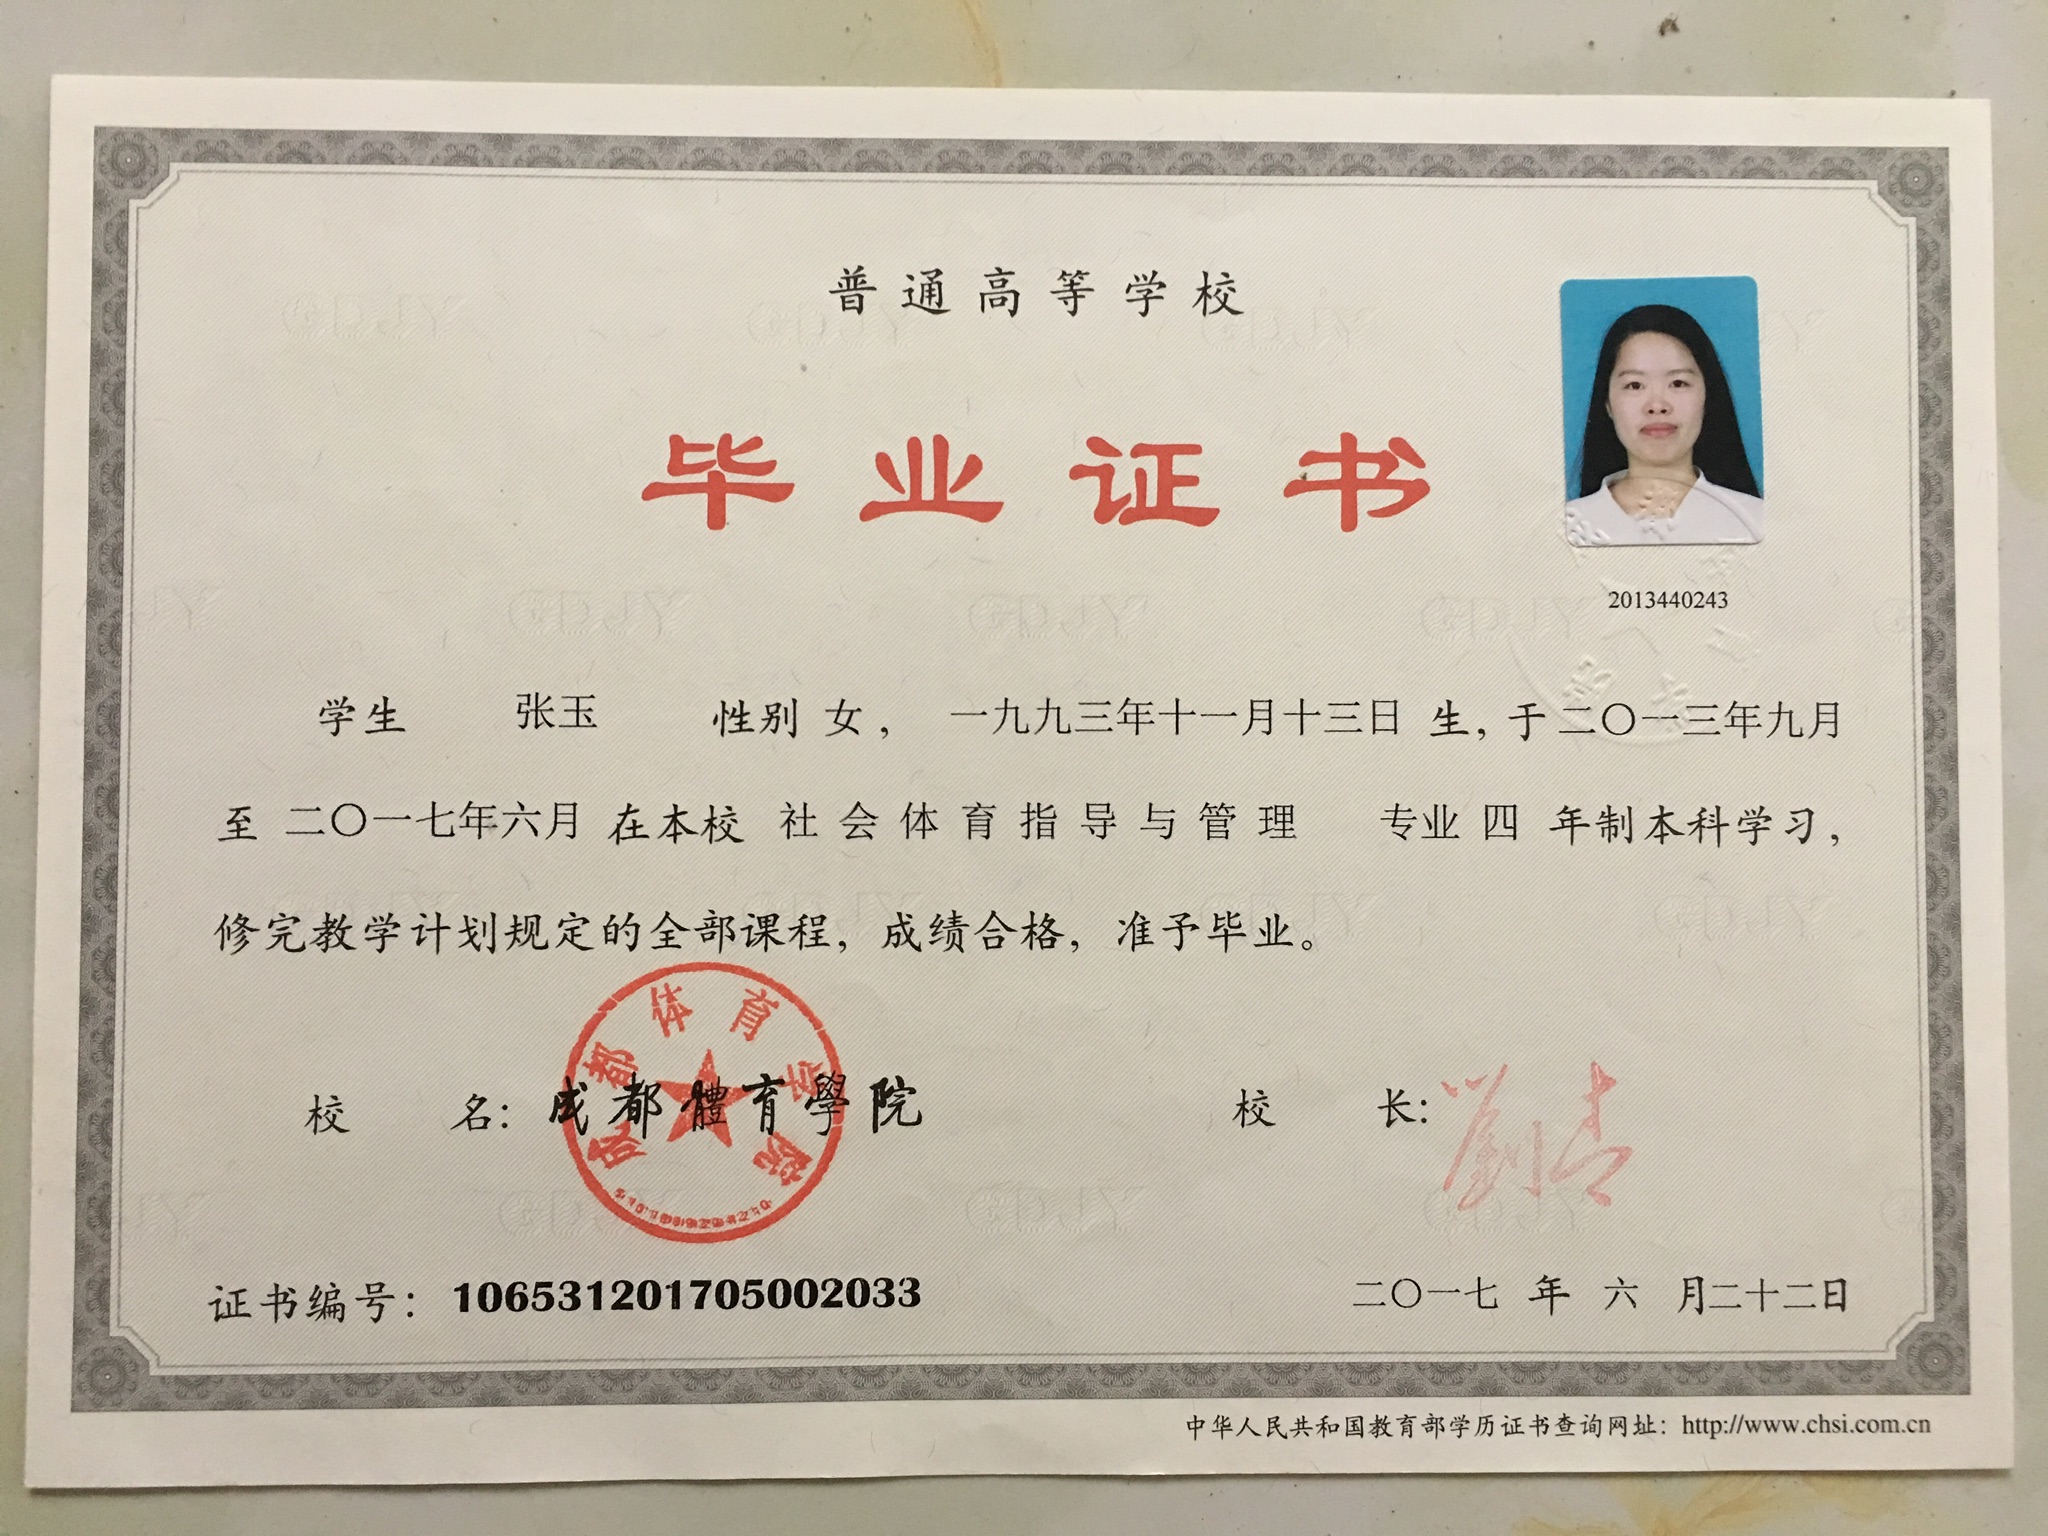 普通高等学校
毕业证书
2013440243
学生 张玉 性别 女， 一九九三年十一月十三日 生，于 二〇一三年九月
至 二〇一七年六月 在本校 社会体育指导与管理 专业 四 年制本科学习，
修完教学计划规定的全部课程，成绩合格，准予毕业。
成都体育学院
校 名：成都體育學院 校 长：劉青
证书编号：106531201705002033 二〇一七 年 六 月二十二日
中华人民共和国教育部学历证书查询网址：http://www.chsi.com.cn